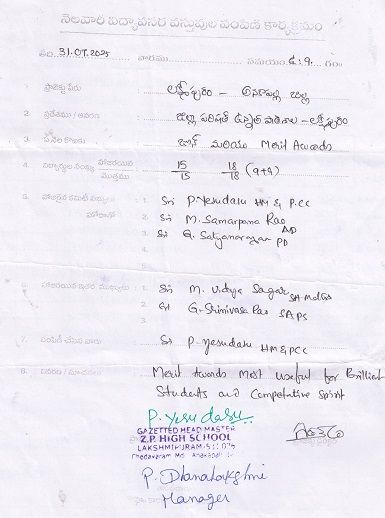 నెలవారి విద్యావసర వస్తువుల పంపిణి కార్యక్రమం
తేది 31.07.2025 వారము సమయం గం॥
ప్రాజెక్టు పేరు లక్ష్మీపురం - అనకాపల్లి జిల్లా
2. ప్రదేశము / ఆవరణ జిల్లా పరిషత్ ఉన్నత పాఠశాల - లక్ష్మీపురం
3. ఏ నెల కొరకు జూన్ మరియు Merit Awards
4. విద్యార్థుల సంఖ్య హాజరయిన మొత్తము 15/15 18/18 (9+9)
5. హాజరైన కమిటీ 1. Sri P. Yesudasu HM & P.CC
2. Sri M. Samarpana Rao
3. Sri G. Satyanarayana PD
6. హాజరయిన ఇతర ముఖ్యులు 1. Sri M. Vidya Sagar SA Maths
2. Sri G. Srinivasa Rao SA PS
3
7. పంపిణీ చేసిన వారు Sri P. Yesudasu HM & PCC
8. వివరణ / సూచనలు Merit Awards most useful for Brilliant
Students and Competative Spirit
P. Yesudasu
GAZETTED HEAD MASTER
Z.P. HIGH SCHOOL
LAKSHMIPURAM-531 075
Cheedavaram Md. Anakapalli
P. Dhanalakshmi
Manager